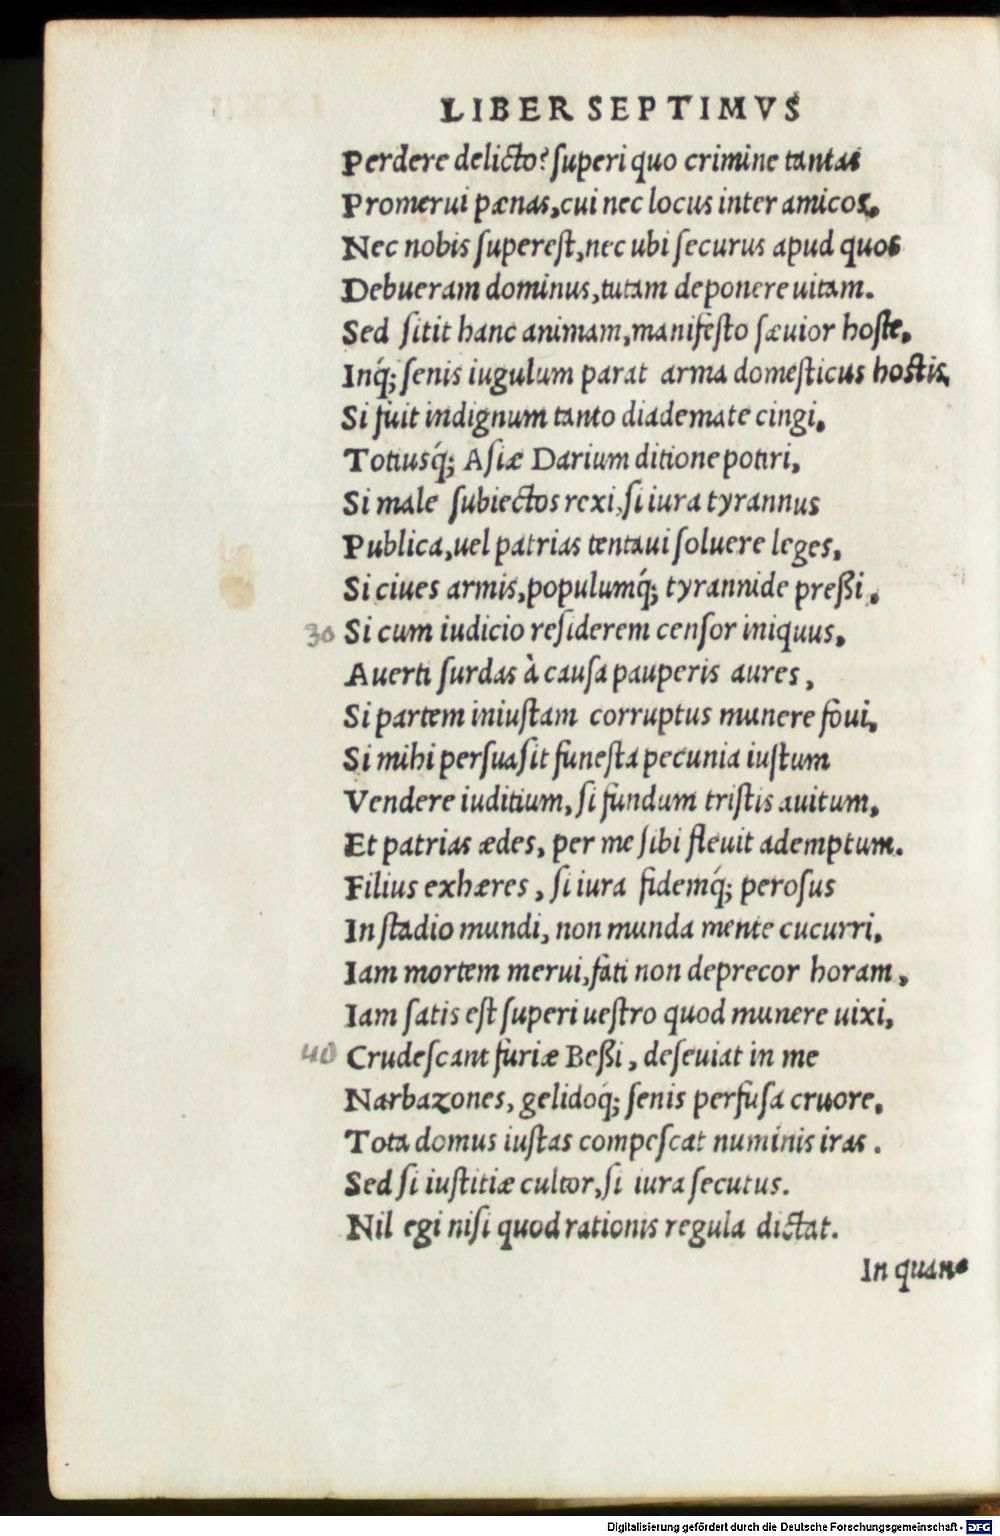 LIBER SEPTIMVS
Perdere delicto? ſuperi quo crimine tantas
Promerui pænas, cui nec locus inter amicos,
Nec nobis ſupereſt, nec ubi ſecurus apud quos
Debueram dominus, tutam deponere uitam.
Sed ſitit hanc animam, manifeſto ſæuior hoſte,
Inq́; ſenis iugulum parat arma domeſticus hoſtis,
Si fuit indignum tanto diademate cingi,
Totiusq́; Aſiæ Darium ditione potiri,
Si male ſubiectos rexi, ſi iura tyrannus
Publica, uel patrias tentaui ſoluere leges,
Si ciues armis, populumq́; tyrannide preßi,
30 Si cum iudicio reſiderem cenſor iniquus,
Auerti ſurdas à cauſa pauperis aures,
Si partem iniuſtam corruptus munere foui,
Si mihi perſuaſit funeſta pecunia iuſtum
Vendere iuditium, ſi fundum triſtis auitum,
Et patrias ædes, per me ſibi fleuit ademptum.
Filius exhæres, ſi iura fidemq́; peroſus
In ſtadio mundi, non munda mente cucurri,
Iam mortem merui, fati non deprecor horam,
Iam ſatis eſt ſuperi ueſtro quod munere uixi,
40 Crudeſcant furiæ Beßi, deſeuiat in me
Narbazones, gelidoq́; ſenis perfuſa cruore,
Tota domus iuſtas compeſcat numinis iras.
Sed ſi iuſtitiæ cultor, ſi iura ſecutus.
Nil egi niſi quod rationis regula dictat.
In quan-
Digitalisierung gefördert durch die Deutsche Forschungsgemeinschaft - DFG